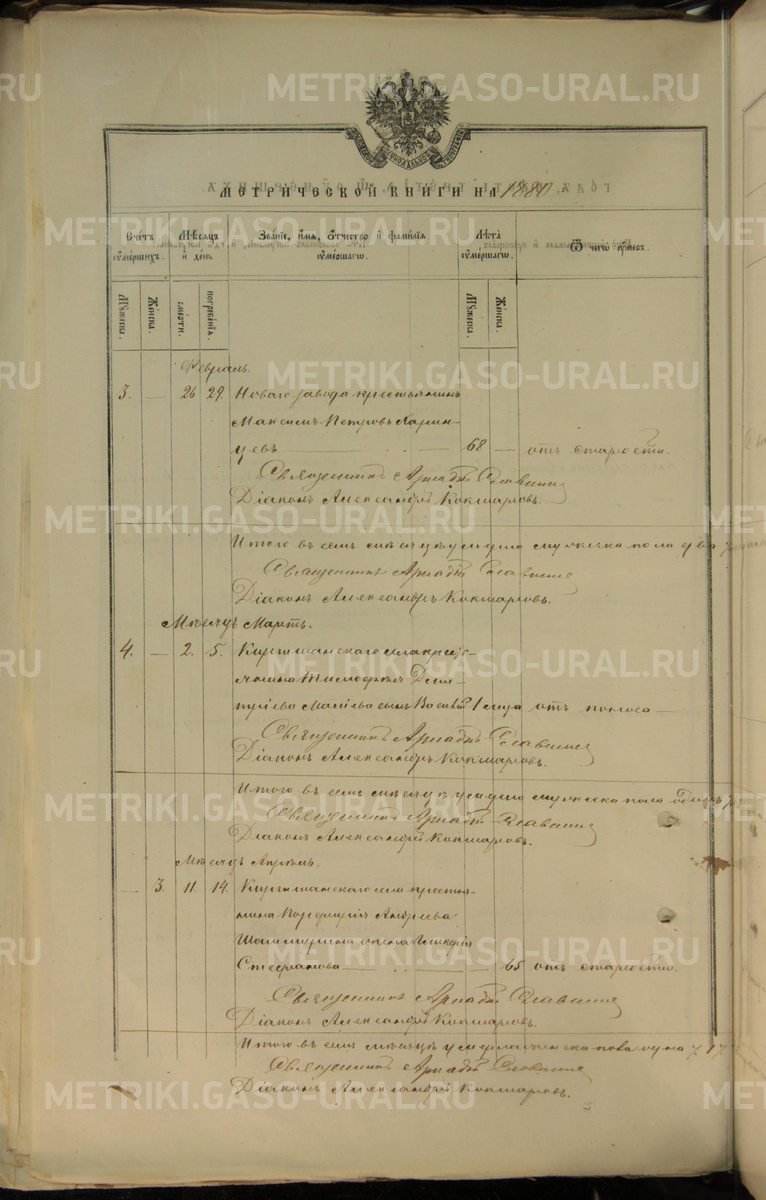 METRIKI.GASO-URAL.RU
МЕТРИЧЕСКОЙ КНИГИ НА 1880
Счетъ умершихъ.
Мѣсяцъ и день
Званіе, имя, отчество и фамилія умершаго.
Лѣта умершаго.
Отъ чего умеръ.
Мужеска.
Женска.
смерти.
погребенія.
Мужеска.
Женска.
Февраль.
3. — 26 29. Новаго завода крестьянинъ
Максимъ Петровъ Зарин-
цевъ — 68 — отъ старости.
Священникъ Аркадій Славнинъ
Діаконъ Александръ Кокшаровъ.
Итого въ семъ мѣсяцѣ умерло мужеска пола два
Священникъ Аркадій Славнинъ
Діаконъ Александръ Кокшаровъ.
Мѣсяцъ Мартъ.
4. — 2. 5. Киргишанскаго села кресть-
янина Тимофея Дми-
тріева сынъ Василій 1 отъ поноса —
Священникъ Аркадій Славнинъ
Діаконъ Александръ Кокшаровъ.
Итого въ семъ мѣсяцѣ умерло мужеска пола одинъ
Священникъ Аркадій Славнинъ
Діаконъ Александръ Кокшаровъ.
Мѣсяцъ Апрѣль.
— 3. 11. 14. Киргишанскаго села крестья-
нина Порфирія Андреева
жена Гликерія
Стефанова — 65 отъ старости.
Священникъ Аркадій Славнинъ
Діаконъ Александръ Кокшаровъ.
Итого въ семъ мѣсяцѣ умерло женска пола одна
Священникъ Аркадій Славнинъ
Діаконъ Александръ Кокшаровъ.